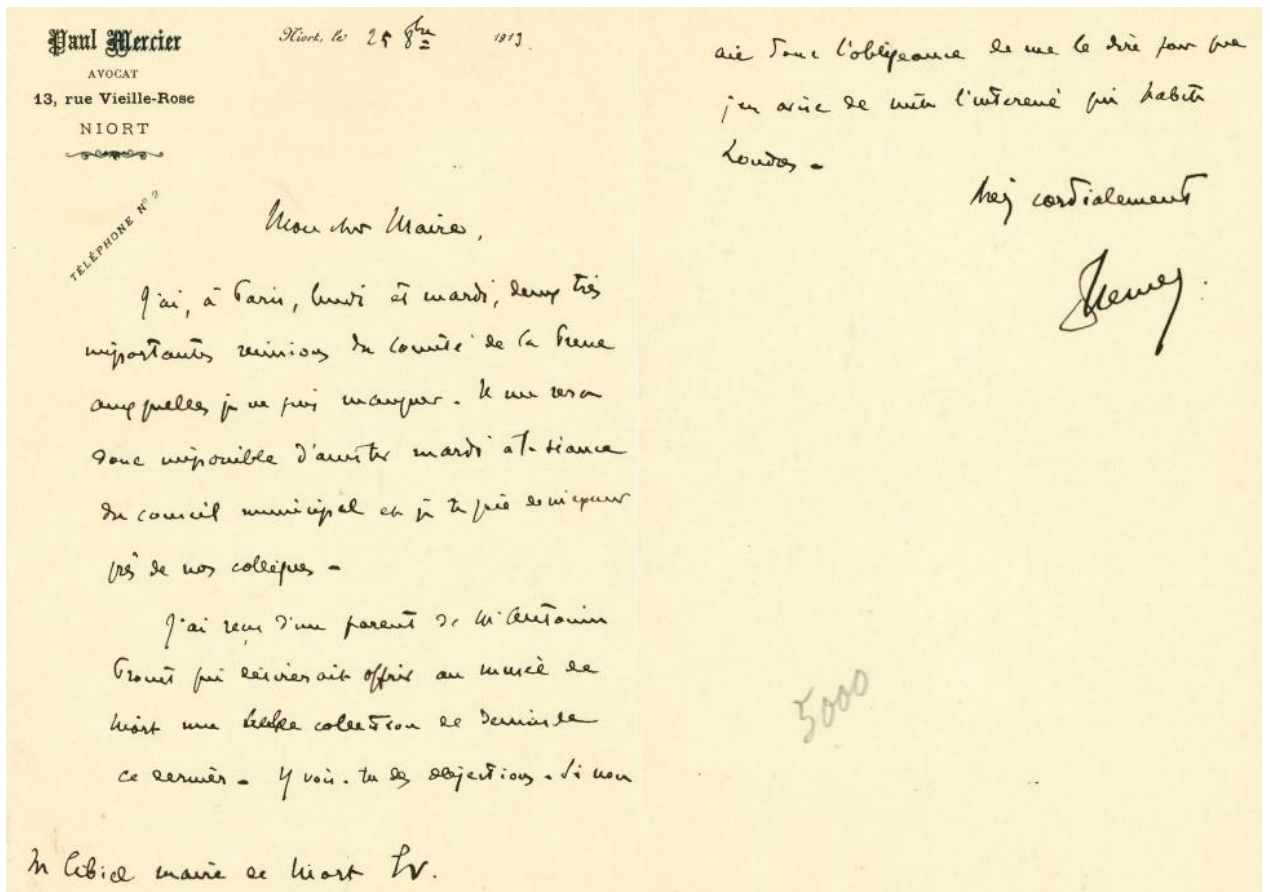 Paul Mercier
AVOCAT
13, rue Vieille-Rose
NIORT
TÉLÉPHONE Nº 2
Niort, le 25 8bre 1913.
Mon cher Maire,
J'ai, à Paris, lundi et mardi, deux très
importantes réunions du comité de la
auxquelles je ne puis manquer. Il me sera
donc impossible d'assister mardi à la séance
du conseil municipal et je te prie de m'excuser
près de nos collègues -
J'ai reçu d'un parent de M. Antonin
Proust qui désirerait offrir au musée de
Niort une belle collection de dessins de
ce dernier - Y vois-tu des objections - Si non
M Libiel maire de Niort
aie donc l'obligeance de me le dire pour que
j'en avise de suite l'intéressé qui habite
Londres -
très cordialement
5000